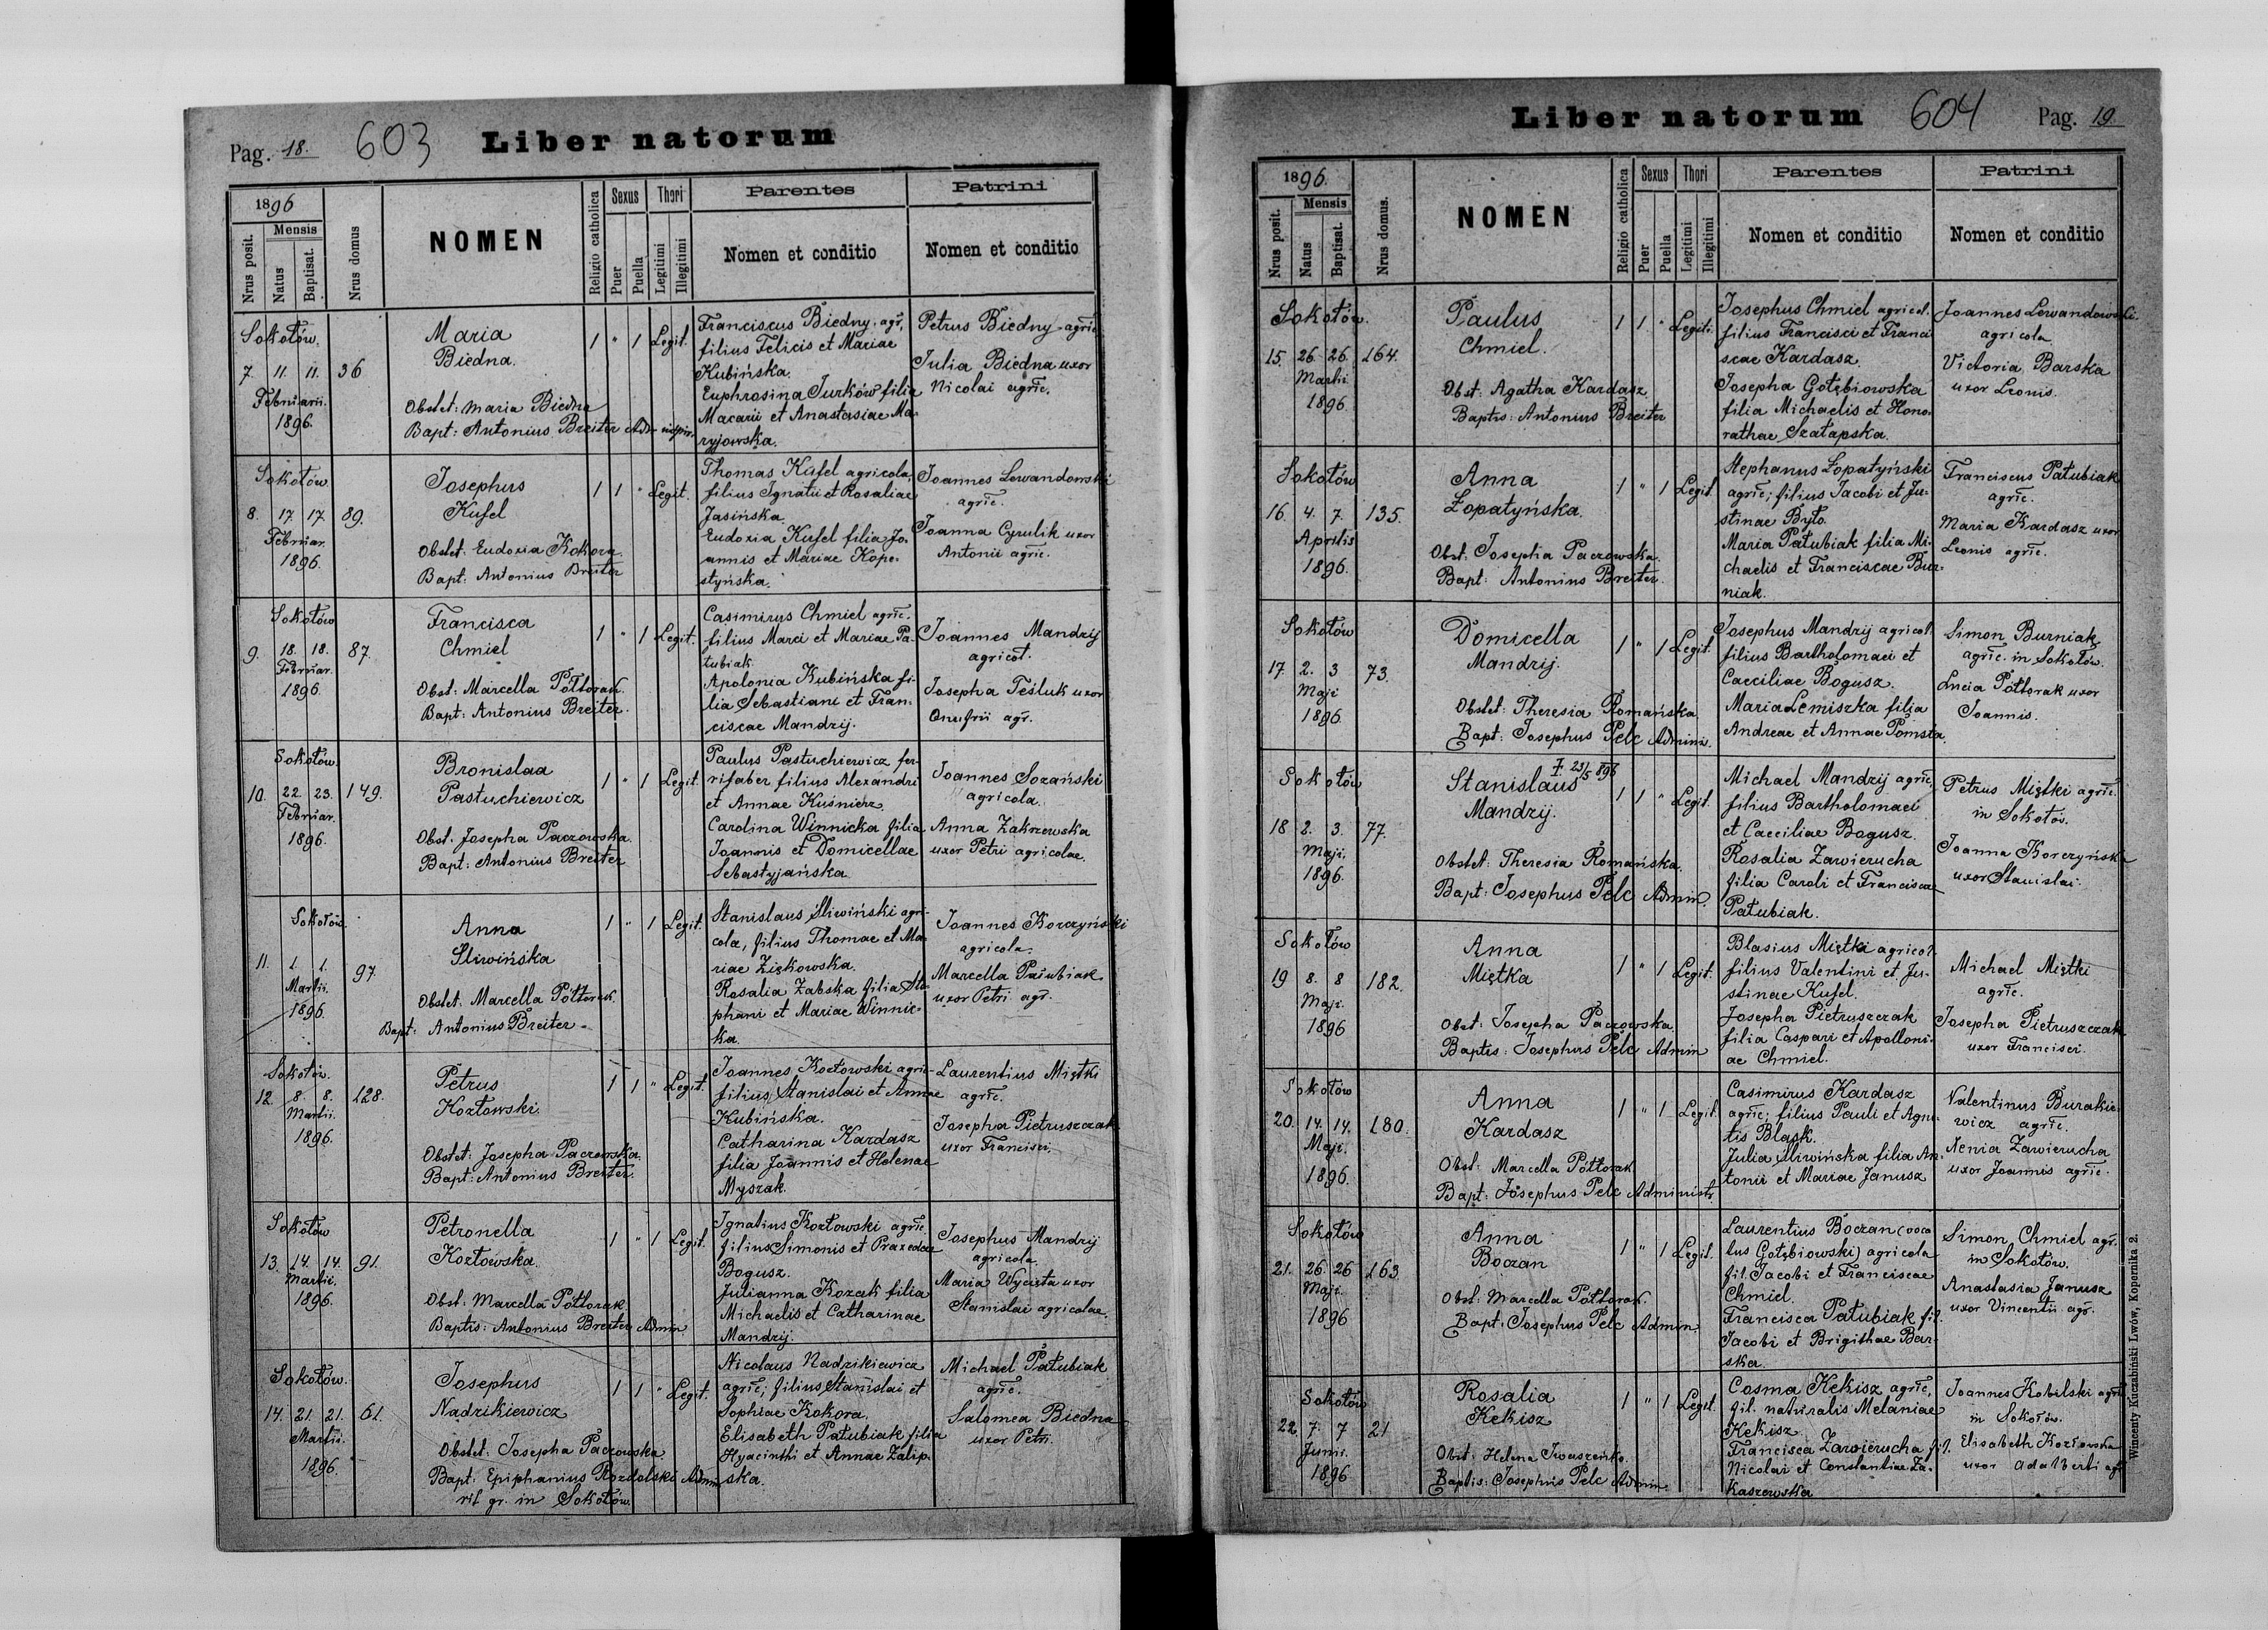 Pag. 18. 603 Liber natorum
1896
Nrus posit.
Mensis
Natus
Baptisat.
Nrus domus
NOMEN
Religio catholica
Sexus
Puer
Puella
Thori
Legitimi
Illegitimi
Parentes
Nomen et conditio
Patrini
Nomen et conditio
Sokołów.
7. 11. 11. 36
Februarii.
1896.
Maria
Biedna.
Obstet: Maria Biedna
Bapt: Antonius Breiter
1 " 1 Legit.
Franciscus Biedny agr.
filius Felicis et Mariae
Kubińska.
Euphrosina Jurków filia
Macarii et Anastasiae Ma-
ryjowska.
Petrus Biedny agric.
Julia Biedna uxor
Nicolai agric.
Sokołów
8. 17. 17 89.
Februar.
1896.
Josephus
Kufel
Obstet: Eudoxia Kokora
Bapt: Antonius Breiter
1 1 " Legit.
Thomas Kufel agricola,
filius Ignatii et Rosaliae
Jasińska
Eudoxia Kufel filia Jo-
annis et Mariae Kope-
styńska.
Joannes Lewandowski
agric.
Joanna Cyrulik uxor
Antonii agric.
Sokołów
9. 18. 18. 87.
Februar.
1896.
Francisca
Chmiel
Obst: Marcella Półtorak
Bapt: Antonius Breiter.
1 " 1 Legit.
Casimirus Chmiel agric.
filius Marci et Mariae Pa-
łubiak
Apolonia Kubińska fi-
lia Sebastiani et Fran-
ciscae Mandzij.
Joannes Mandzij
agricol.
Josepha Teśluk uxor
Onufrii agr.
Sokołów.
10. 22. 23. 149.
Februar.
1896.
Bronislaa
Pastuchiewicz
Obst: Josepha Paczowska.
Bapt: Antonius Breiter
1 " 1 Legit.
Paulus Pastuchiewicz fer-
rifaber filius Alexandri
et Annae Kuśnierz
Carolina Winnicka filia
Joannis et Domicellae
Sebastyjańska
Joannes Sozański
agricola.
Anna Zakrzewska
uxor Petri agricolae.
Sokołów.
11. 1. 1. 97.
Martii.
1896.
Anna
Śliwińska
Obstet: Marcella Półtorak.
Bapt: Antonius Breiter.
1 " 1 Legit.
Stanislaus Śliwiński agri-
cola, filius Thomae et Ma-
riae Ziętkowska.
Rosalia Żabska filia Ste-
phani et Mariae Winnic-
ka.
Joannes Korczyński
agricola.
Marcella Pałubiak
uxor Petri agr.
Sokołów.
12. 8. 8. 128.
Martii.
1896.
Petrus
Kozłowski
Obstet: Josepha Paczowska.
Bapt: Antonius Breiter.
1 1 " Legit.
Joannes Kozłowski agric-
filius Stanislai et Annae
Kubińska.
Catharina Kardasz
filia Joannis et Helenae
Myszak.
Laurentius Miętki
agric.
Josepha Pietruszczak
uxor Francisci.
Sokołów
13. 14. 14. 91.
Martii.
1896.
Petronella
Kozłowska.
Obst: Marcella Półtorak
Baptis: Antonius Breiter Admin
1 " 1 Legit.
Ignatius Kozłowski agric.
filius Simonis et Praxedae
Bogusz.
Julianna Kozak filia
Michaelis et Catharinae
Mandzij
Josephus Mandzij
agricola.
Maria Wycista uxor
Stanislai agricolae
Sokołów.
14. 21. 21. 61.
Martii.
1896.
Josephus
Nadzikiewicz
Obstet: Josepha Paczowska.
Bapt: Epiphanius Rozdolski Admin
rit. gr. in Sokołów.
1 1 " Legit.
Nicolaus Nadzikiewicz
agric; filius Stanislai et
Sophiae Kokora.
Elisabeth Pałubiak filia
Hyacinthi et Annae Zalip-
ska.
Michael Pałubiak
agric.
Salomea Biedna
uxor Petri
Liber natorum 604 Pag. 19
1896.
Nrus posit.
Mensis
Natus
Baptisat.
Nrus domus.
NOMEN
Religio catholica
Sexus
Puer
Puella
Thori
Legitimi
Illegitimi
Parentes
Nomen et conditio
Patrini
Nomen et conditio
Sokołów.
15. 26. 26. 164.
Martii
1896.
Paulus
Chmiel.
Obst. Agatha Kardasz
Baptis: Antonius Breiter
1 1 " Legiti.
Josephus Chmiel agricol.
filius Francisci et Franci-
scae Kardasz.
Josepha Gołębiowska
filia Michaelis et Hono-
rathae Szałapska.
Joannes Lewandowski.
agricola
Victoria Barska
uxor Leonis.
Sokołów
16. 4. 7. 135.
Aprilis
1896.
Anna
Łopatyńska.
Obst: Josepha Paczowska.
Bapt: Antonius Breiter.
1 " 1 Legit.
Stephanus Łopatyński
agric; filius Jacobi et Ju-
stinae Było.
Maria Pałubiak filia Mi-
chaelis et Franciscae Bur-
niak.
Franciscus Pałubiak
agric.
Maria Kardasz uxor
Leonis agric.
Sokołów
17. 2. 3 73.
Maji
1896.
Domicella
Mandzij.
Obstet: Theresia Romańska
Bapt: Josephus Pelc Admini.
1 " 1 Legit.
Josephus Mandzij agricol.
filius Bartholomaei et
Caeciliae Bogusz.
Maria Lemiszka filia
Andreae et Annae Pomsta.
Simon Burniak
agric. in Sokołów.
Lucia Półtorak uxor
Joannis.
Sokołów
18 2. 3. 77.
Maji.
1896.
‡ 23/5 896
Stanislaus
Mandzij.
Obstet: Theresia Romańska.
Bapt: Josephus Pelc Admin.
1 1 " Legit.
Michael Mandzij agric,
filius Bartholomaei
et Caeciliae Bogusz.
Rosalia Zawierucha
filia Caroli et Franciscae
Pałubiak.
Petrus Miętki agric.
in Sokołów.
Joanna Korczyńska
uxor Stanislai.
Sokołów
19 8. 8 182.
Maji.
1896
Anna
Miętka
Obst: Josepha Paczowska
Baptis: Josephus Pelc Admin
1 " 1 Legit.
Blasius Miętki agricol.
filius Valentini et Ju-
stinae Kufel.
Josepha Pietruszczak
filia Caspari et Apolloni-
ae Chmiel.
Michael Miętki
agric.
Josepha Pietruszczak
uxor Francisci.
Sokołów
20. 14. 14. 180.
Maji.
1896.
Anna
Kardasz
Obst: Marcella Półtorak
Bapt: Josephus Pelc Administr.
1 " 1 Legit.
Casimirus Kardasz
agric; filius Pauli et Agne-
tis Blask.
Julia Śliwińska filia An-
tonii et Mariae Janusz
Valentinus Burakie-
wicz agric.
Xenia Zawierucha
uxor Joannis agric.
Sokołów
21. 26 26 163
Maji.
1896
Anna
Boczan
Obst: Marcella Półtorak.
Bapt: Josephus Pelc Admin.
1 " 1 Legit.
Laurentius Boczan (voca-
tus Gołębiowski) agricola
fil. Jacobi et Franciscae
Chmiel.
Francisca Pałubiak fil.
Jacobi et Brigithae Bar-
ska.
Simon Chmiel agr.
in Sokołów.
Anastasia Janusz
uxor Vincentii agr.
Sokołów
22. 7. 7 21
Junii.
1896
Rosalia
Kekisz
Obst: Helena Iwaszenko.
Baptis: Josephus Pelc Admin.
1 " 1 Legit.
Cosma Kekisz agric,
fil. naturalis Melaniae
Kekisz
Francisca Zawierucha fil.
Nicolai et Constantiae Za-
kaszewska
Joannes Kobilski agric
in Sokołów.
Elisabeth Kozłowska
uxor Adalberti agr
Wincenty Kuczabiński Lwów, Kopernika 2.